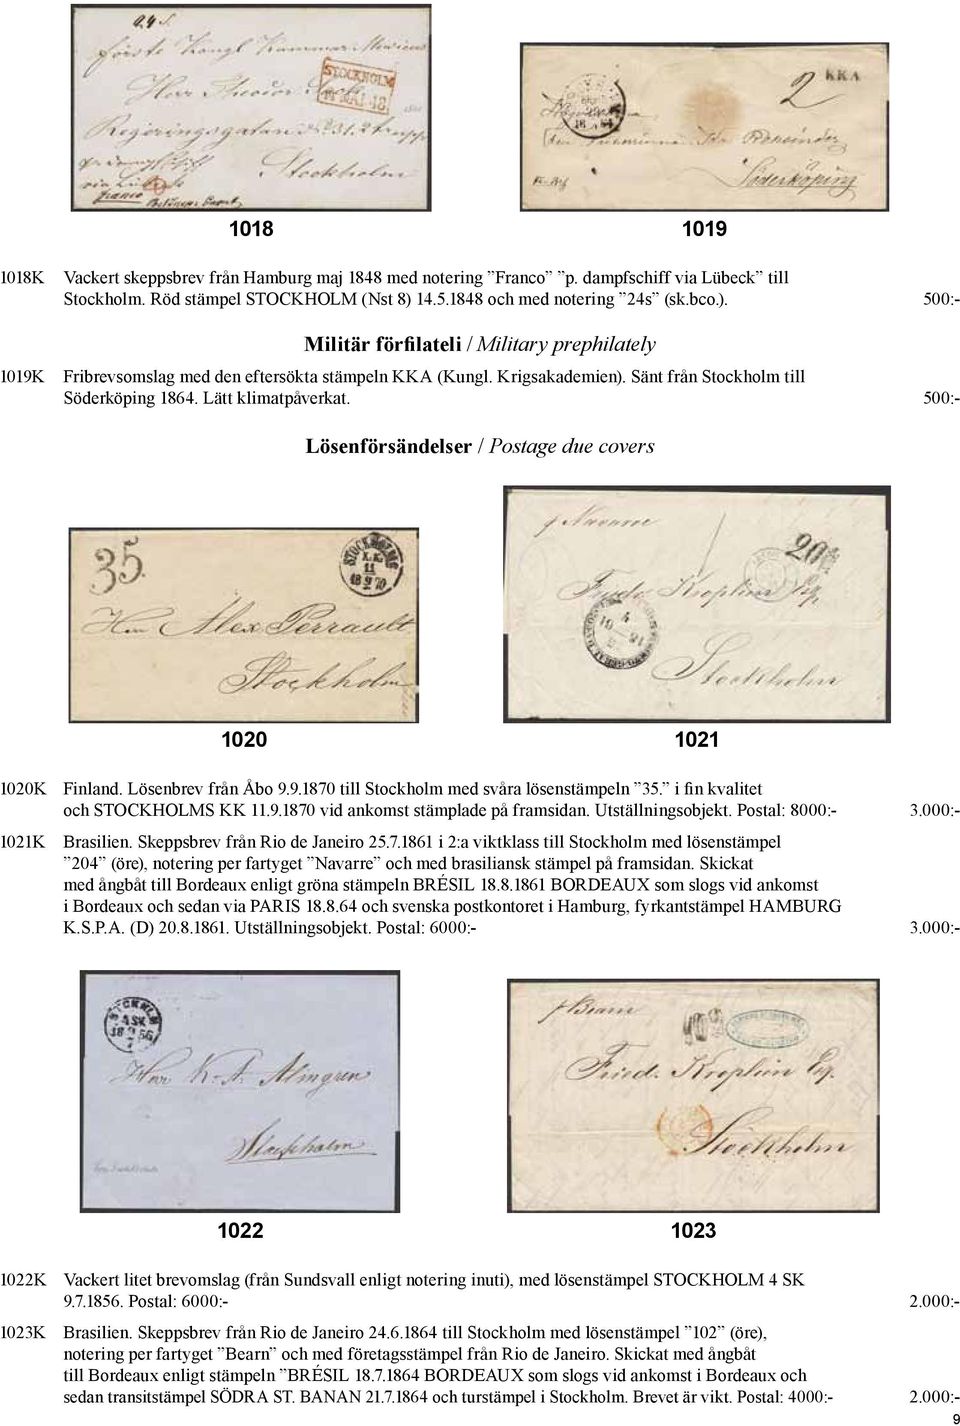 24 s.
Första Kongl Kammar
Herr Theodor
STOCKHOLM
14 MAI. 48.
Regeringsgatan No 31. 2 trapp
via Lübeck
franco
Stockholm
2
KKA
Söderköping
1018
1019
1018K Vackert skeppsbrev från Hamburg maj 1848 med notering ”Franco” p. dampfschiff via Lübeck” till
Stockholm. Röd stämpel STOCKHOLM (Nst 8) 14.5.1848 och med notering ”24s (sk.bco.). 500:-
Militär förfilateli / Military prephilately
1019K Fribrevsomslag med den eftersökta stämpeln KKA (Kungl. Krigsakademien). Sänt från Stockholm till
Söderköping 1864. Lätt klimatpåverkat. 500:-
Lösenförsändelser / Postage due covers
35.
STOCKHOLMS
K.K.
11
18 9 70
Herr Alex Perrault
Stockholm
p Navarre
Fredr. Kroplin Esq.
Stockholm
1020
1021
1020K Finland. Lösenbrev från Åbo 9.9.1870 till Stockholm med svåra lösenstämpeln ”35.” i fin kvalitet
och STOCKHOLMS KK 11.9.1870 vid ankomst stämplade på framsidan. Utställningsobjekt. Postal: 8000:- 3.000:-
1021K Brasilien. Skeppsbrev från Rio de Janeiro 25.7.1861 i 2:a viktklass till Stockholm med lösenstämpel
”204” (öre), notering per fartyget ”Navarre” och med brasiliansk stämpel på framsidan. Skickat
med ångbåt till Bordeaux enligt gröna stämpeln BRÉSIL 18.8.1861 BORDEAUX som slogs vid ankomst
i Bordeaux och sedan via PARIS 18.8.64 och svenska postkontoret i Hamburg, fyrkantstämpel HAMBURG
K.S.P.A. (D) 20.8.1861. Utställningsobjekt. Postal: 6000:- 3.000:-
STOCKHLM
4 SK
18 9 56
7
Herr K. A. Almgren
Stockholm
p Bearn
Fried. Kroplin Esq.
Stockholm
1022
1023
1022K Vackert litet brevomslag (från Sundsvall enligt notering inuti), med lösenstämpel STOCKHOLM 4 SK
9.7.1856. Postal: 6000:- 2.000:-
1023K Brasilien. Skeppsbrev från Rio de Janeiro 24.6.1864 till Stockholm med lösenstämpel ”102” (öre),
notering per fartyget ”Bearn” och med företagsstämpel från Rio de Janeiro. Skickat med ångbåt
till Bordeaux enligt stämpeln ”BRÉSIL 18.7.1864 BORDEAUX som slogs vid ankomst i Bordeaux och
sedan transitstämpel SÖDRA ST. BANAN 21.7.1864 och turstämpel i Stockholm. Brevet är vikt. Postal: 4000:- 2.000:-
9